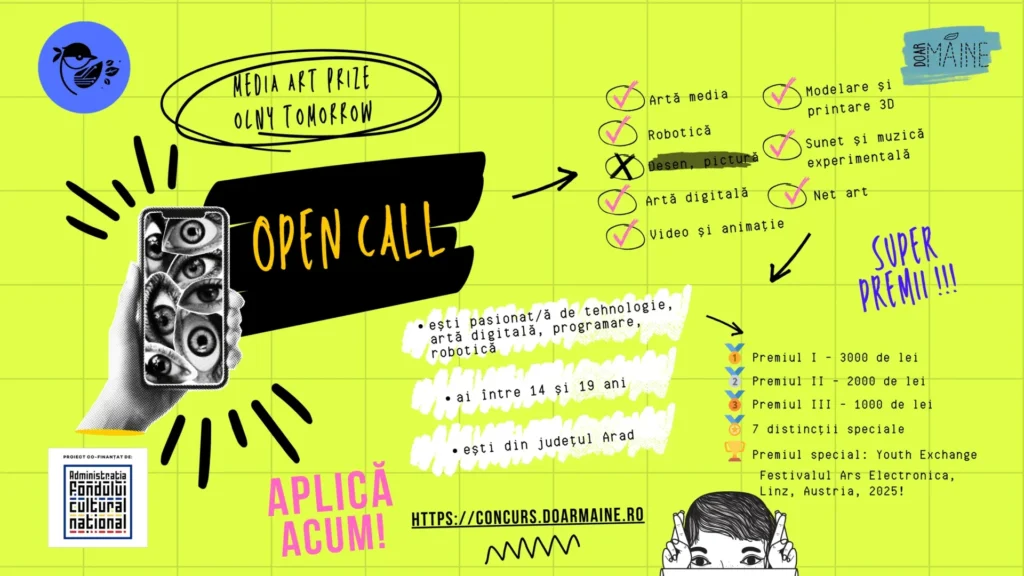 MEDIA ART PRIZE
OLNY TOMORROW
DOAR
MÂINE
OPEN CALL
Artă media
Robotică
Desen, pictură
Artă digitală
Video și animație
Modelare și
printare 3D
Sunet și muzică
experimentală
Net art
SUPER
PREMII !!!
• ești pasionat/ă de tehnologie,
artă digitală, programare,
robotică
• ai între 14 și 19 ani
• ești din județul Arad
1 Premiul I - 3000 de lei
2 Premiul II - 2000 de lei
3 Premiul III - 1000 de lei
7 distincții speciale
Premiul special: Youth Exchange
Festivalul Ars Electronica,
Linz, Austria, 2025!
PROIECT CO-FINANȚAT DE:
Administrația
fondului
cultural
național
APLICĂ
ACUM!
HTTPS://CONCURS.DOARMAINE.RO